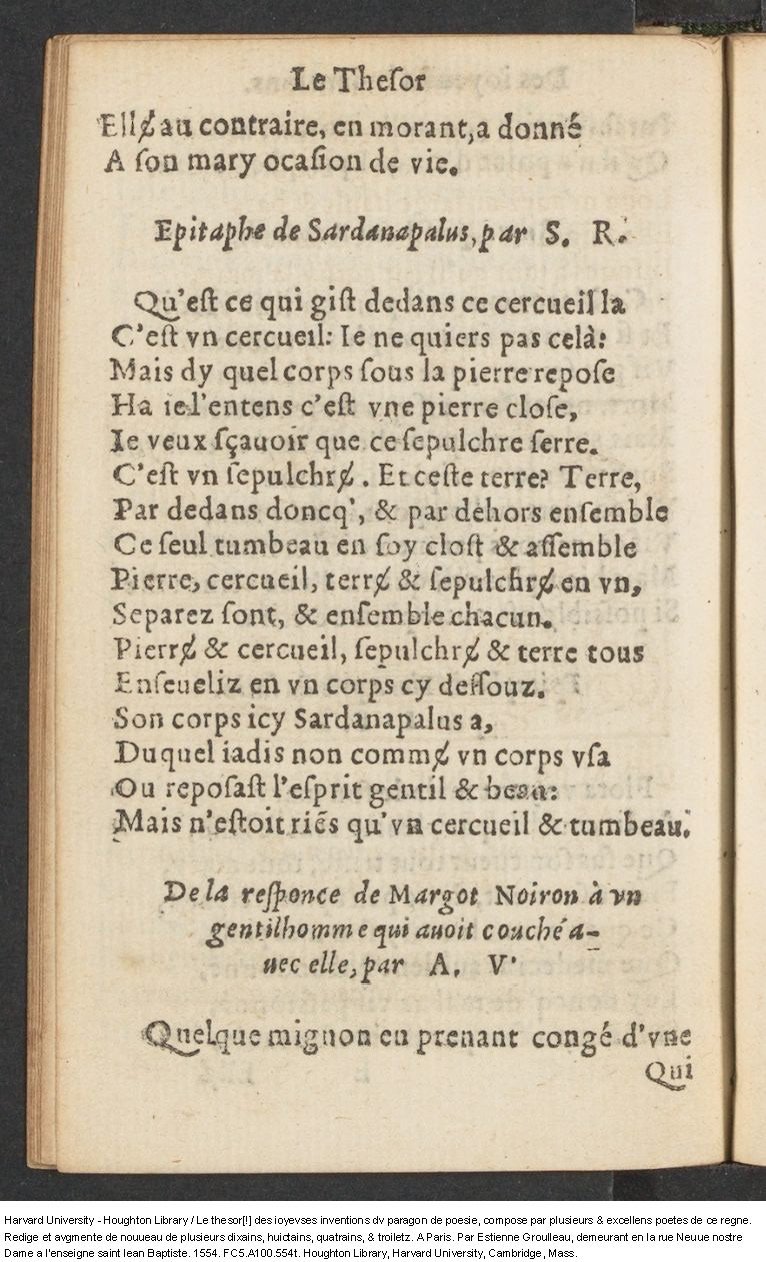 Le Theſor
Ellɇ au contraire, en morant, a donné
A ſon mary ocaſion de vie.
Epitaphe de Sardanapalus, par S. R.
Qu'eſt ce qui giſt dedans ce cercueil la
C'eſt vn cercueil: Ie ne quiers pas celà:
Mais dy quel corps ſous la pierre repoſe
Ha ie l'entens c'eſt vne pierre cloſe,
Ie veux ſçauoir que ce ſepulchre ſerre.
C'eſt vn ſepulchrɇ. Et ceſte terre? Terre,
Par dedans doncq', & par dehors enſemble
Ce ſeul tumbeau en ſoy cloſt & aſſemble
Pierre, cercueil, terrɇ & ſepulchrɇ en vn,
Separez ſont, & enſemble chacun.
Pierrɇ & cercueil, ſepulchrɇ & terre tous
Enſeueliz en vn corps cy deſſouz.
Son corps icy Sardanapalus a,
Duquel iadis non commɇ vn corps vſa
Ou repoſaſt l'eſprit gentil & beau:
Mais n'eſtoit riẽs qu'vn cercueil & tumbeau.
De la reſponce de Margot Noiron à vn
gentilhomme qui auoit couché a-
uec elle, par A. V.
Quelque mignon en prenant congé d'vne
Qui
Harvard University - Houghton Library / Le thesor[!] des ioyevses inventions dv paragon de poesie, compose par plusieurs & excellens poetes de ce regne.
Redige et avgmente de nouueau de plusieurs dixains, huictains, quatrains, & troiletz. A Paris. Par Estienne Groulleau, demeurant en la rue Neuue nostre
Dame a l'enseigne saint Iean Baptiste. 1554. FC5.A100.554t. Houghton Library, Harvard University, Cambridge, Mass.